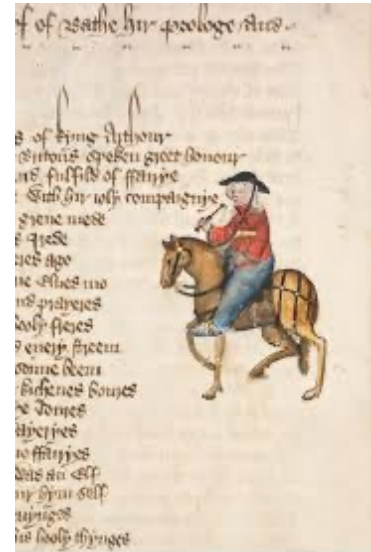 of Bathe hir prologe and
s of kyng Arthour
Britons speken greet honour
fulfild of ffairye
with hir ioly compaignye
grene mede
rede
eres ago
ne Elues mo
prayeres
hooly freres
euery streem
sonne beem
kichenes boures
toures
ayeryes
no ffairyes
was an Elf
hym self
nynges
hooly thynges